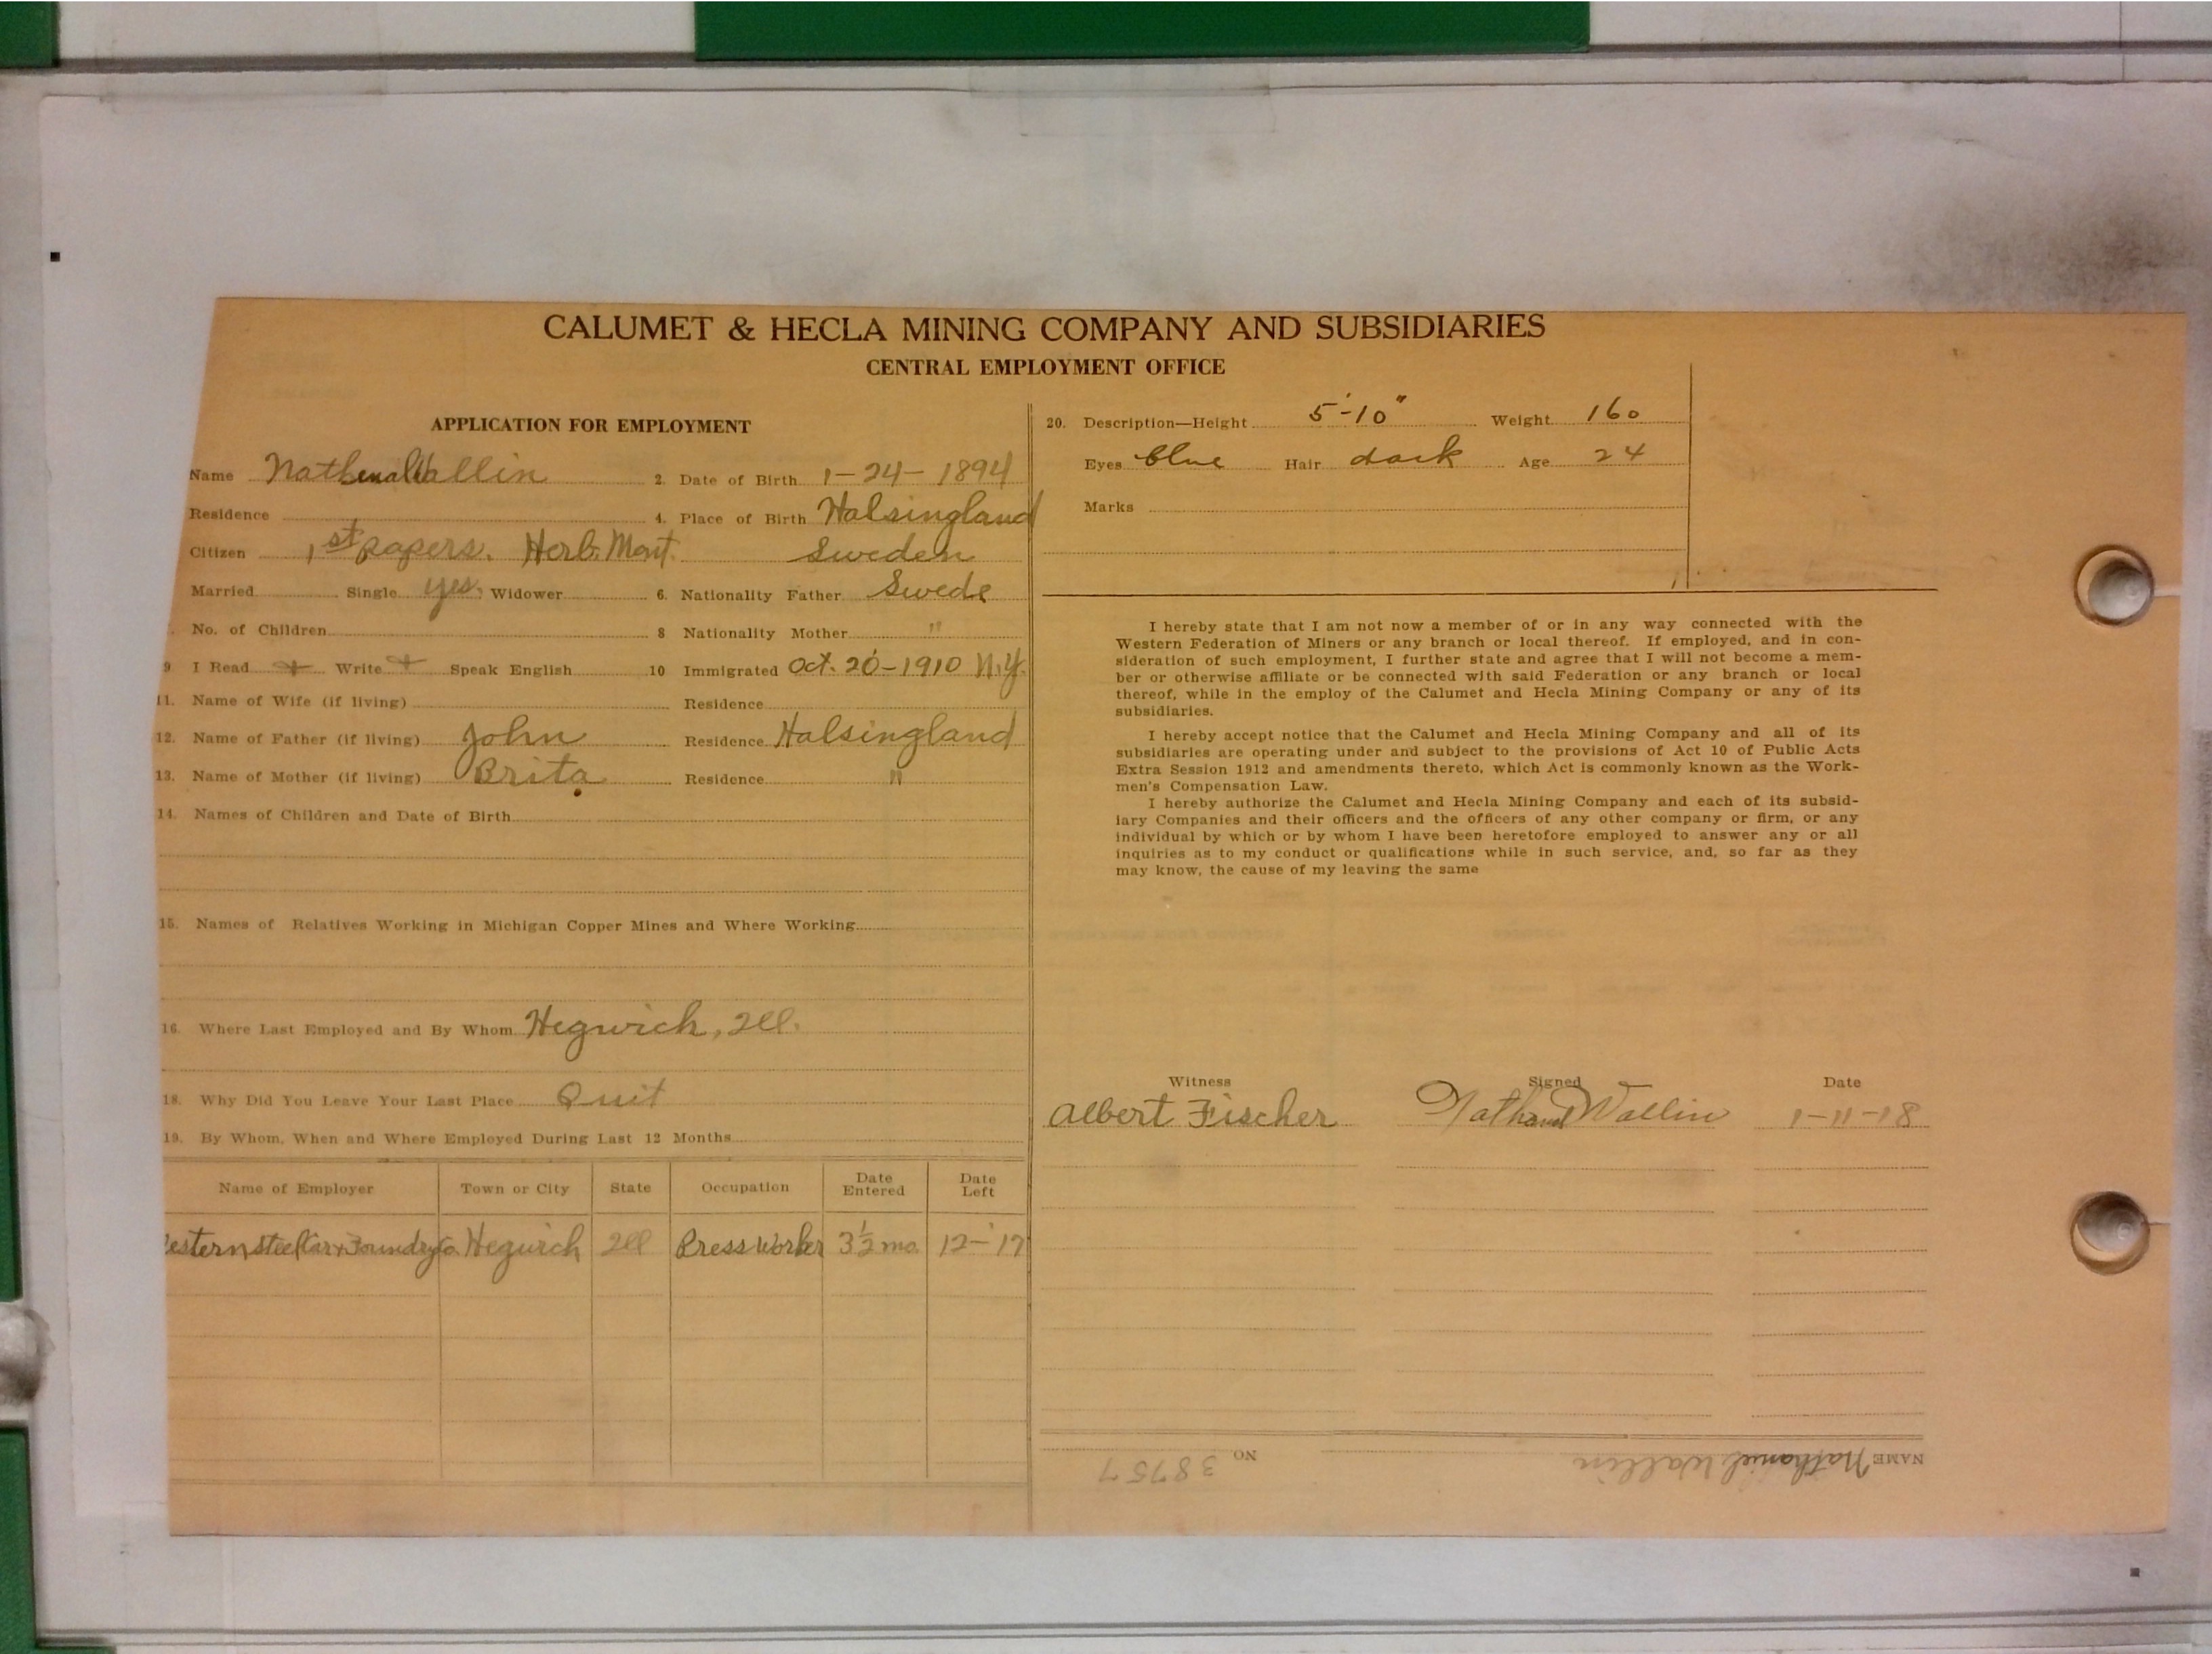 CALUMET & HECLA MINING COMPANY AND SUBSIDIARIES
CENTRAL EMPLOYMENT OFFICE
APPLICATION FOR EMPLOYMENT
Name Wallin 2. Date of Birth 1-24-1894
Residence 4. Place of Birth Halsingland
Citizen 1st papers. Sweden
Married Single yes. Widower 6. Nationality Father Swede
No. of Children 8 Nationality Mother "
9 I Read + Write + Speak English 10 Immigrated Oct. 20-1910 N.Y.
11. Name of Wife (if living) Residence
12. Name of Father (if living) John Residence Halsingland
13. Name of Mother (if living) Brita Residence "
14. Names of Children and Date of Birth
15. Names of Relatives Working in Michigan Copper Mines and Where Working
16. Where Last Employed and By Whom Hegwich, Ill.
18. Why Did You Leave Your Last Place Quit
19. By Whom, When and Where Employed During Last 12 Months
Name of Employer Town or City State Occupation Date Entered Date Left
estern Steel Car & Foundry Co. Hegwich Ill Press Worker 3 1/2 mo. 12-'17
20. Description—Height 5'-10" Weight 160
Eyes blue Hair dark Age 24
Marks
I hereby state that I am not now a member of or in any way connected with the
Western Federation of Miners or any branch or local thereof. If employed, and in con-
sideration of such employment, I further state and agree that I will not become a mem-
ber or otherwise affiliate or be connected with said Federation or any branch or local
thereof, while in the employ of the Calumet and Hecla Mining Company or any of its
subsidiaries.
I hereby accept notice that the Calumet and Hecla Mining Company and all of its
subsidiaries are operating under and subject to the provisions of Act 10 of Public Acts
Extra Session 1912 and amendments thereto, which Act is commonly known as the Work-
men's Compensation Law.
I hereby authorize the Calumet and Hecla Mining Company and each of its subsid-
iary Companies and their officers and the officers of any other company or firm, or any
individual by which or by whom I have been heretofore employed to answer any or all
inquiries as to my conduct or qualifications while in such service, and, so far as they
may know, the cause of my leaving the same
Witness Signed Date
Albert Fischer Wallin 1-11-18
NAME Nathaniel Wallin NO 38757